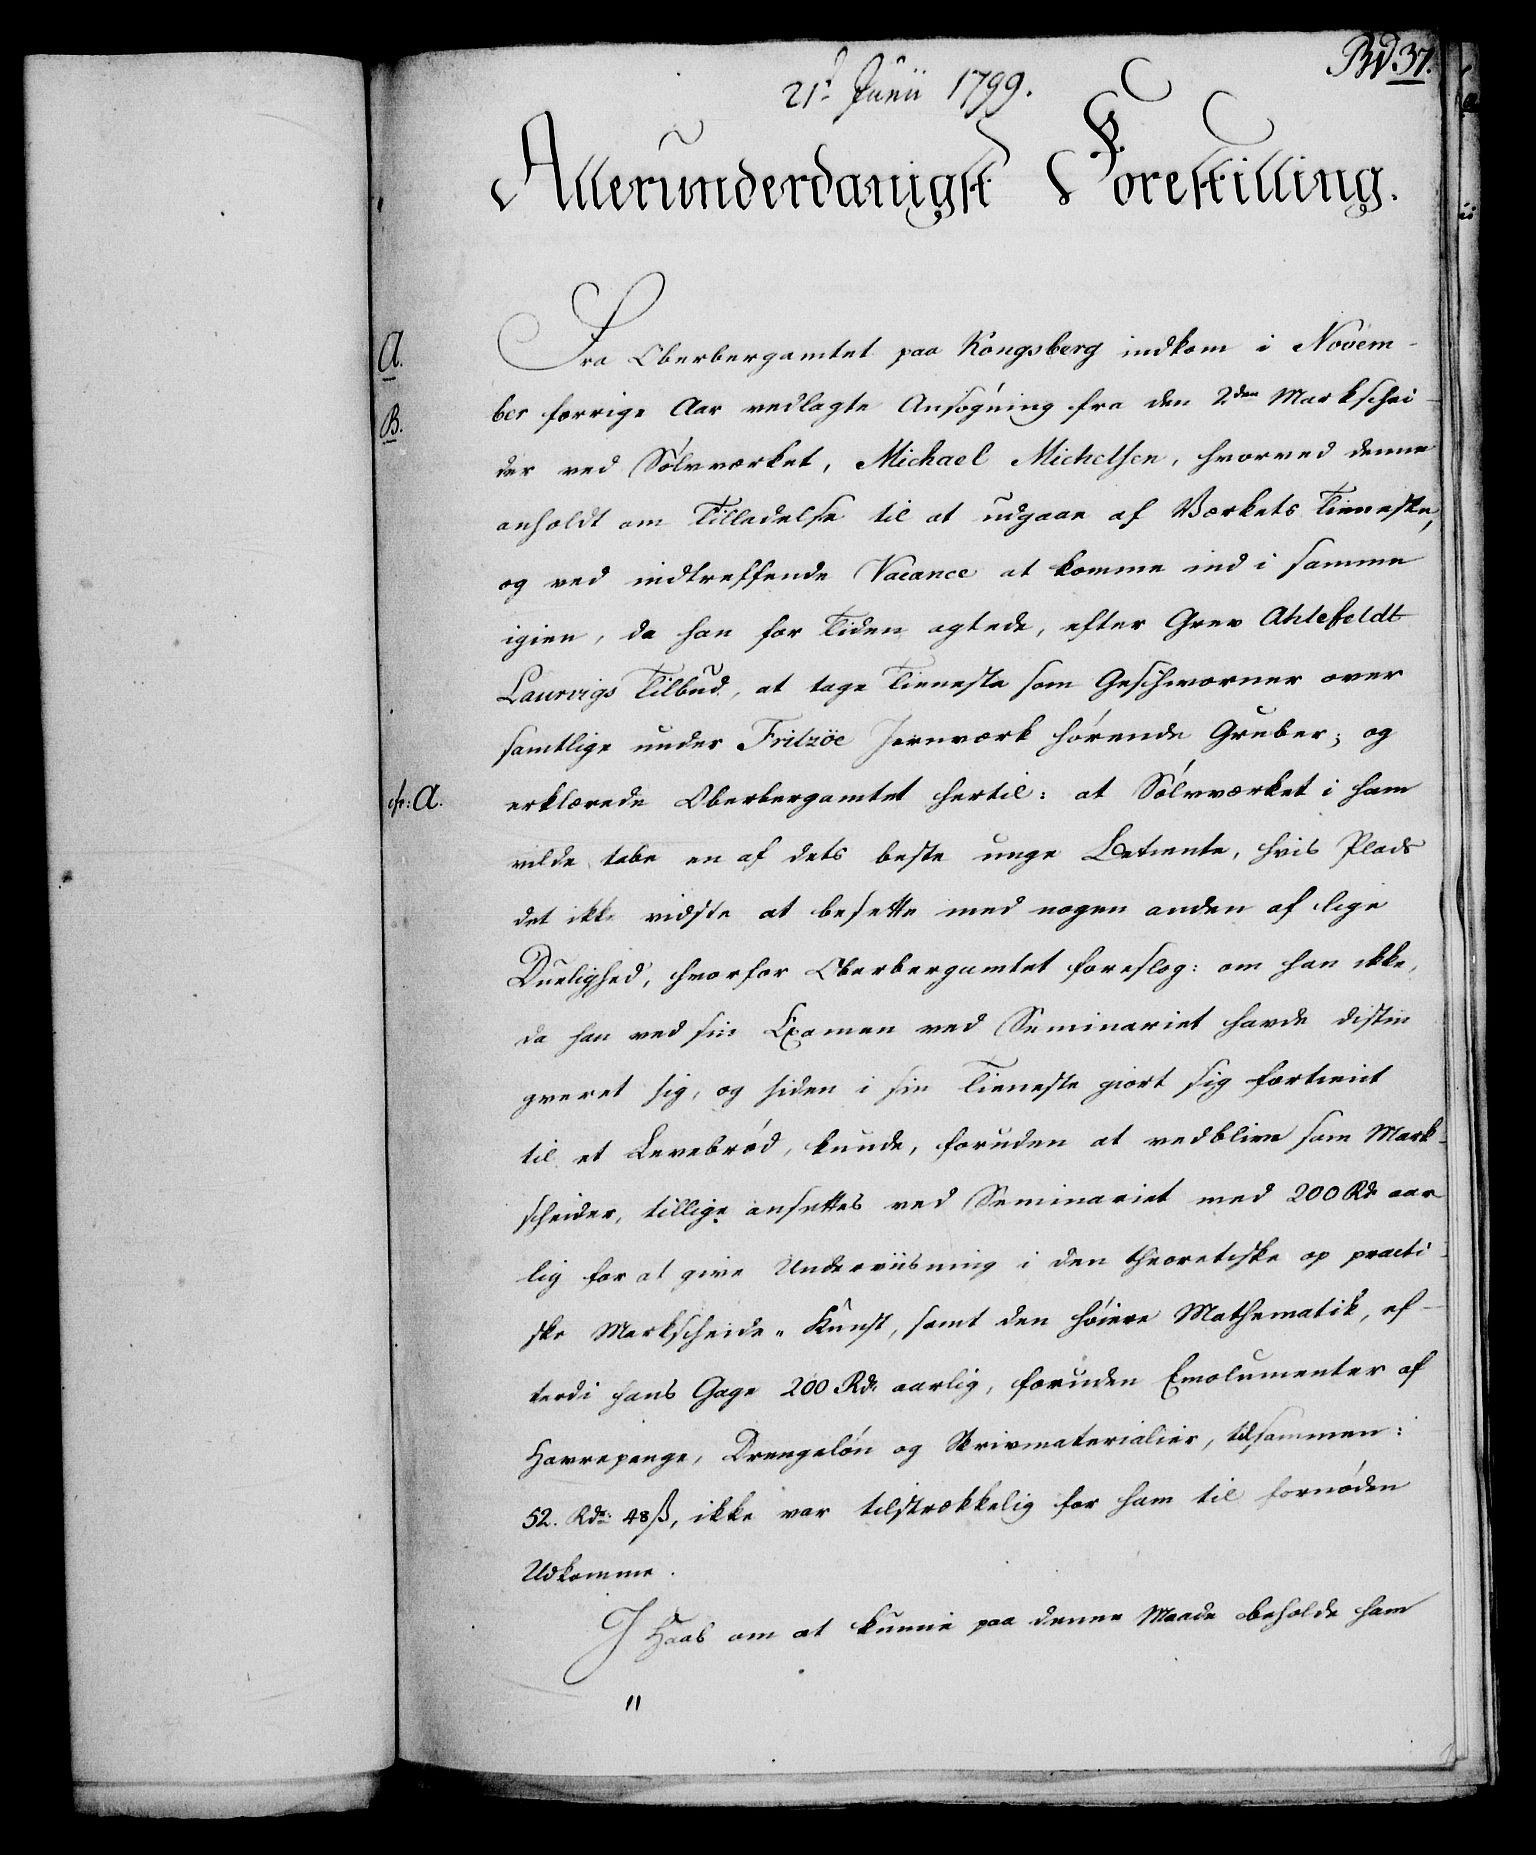 Bd. 37.
21d Junii 1799.
Allerunderdanigst Forestilling.
A.
Fra Oberbergamtet paa Kongsberg indkom i Novem-
B.
ber forrige Aar vedlagte Ansøgning fra den 2den Markschei-
der ved Sølvværket, Michael Michelsen, hvorved denne
anholdt om Tilladelse til at udgaae af Værkets Tieneste,
og ved indtreffende Vacance at komme ind i samme
igien, da han for Tiden agtede, efter Grev Ahlefeldt
Laurvigs Tilbud, at tage Tieneste som Geschworner over
samtlige under Fritzöe Jernværk hørende Gruber; og
cfr: A.
erklærede Oberbergamtet hertil: at Sølvværket i ham
vilde tabe en af dets beste unge Betiente, hvis Plads
det ikke vidste at besette med nogen anden af lige
Duelighed, hvorfor Oberbergamtet foreslog: om han ikke,
da han ved sin Examen ved Seminariet havde distin
gveret sig, og siden i sin Tieneste giort sig fortient
til et Levebrød, kunde, foruden at vedblive som Mark-
scheider, tillige ansettes ved Seminariet med 200 Rd aar
lig for at give Underviisning i den theoretiske og practi-
ske Markscheide-Kunst, samt den høiere Mathematik, ef-
terdi hans Gage 200 Rd. aarlig, foruden Emolumenter af
Havrepenge, Drengeløn og Skrivmaterialier, tilsammen:
52. Rdr 48 ß, ikke var tilstrækkelig for ham til fornøden
Udkomme.
I Haab om at kunne paa denne Maade beholde ham